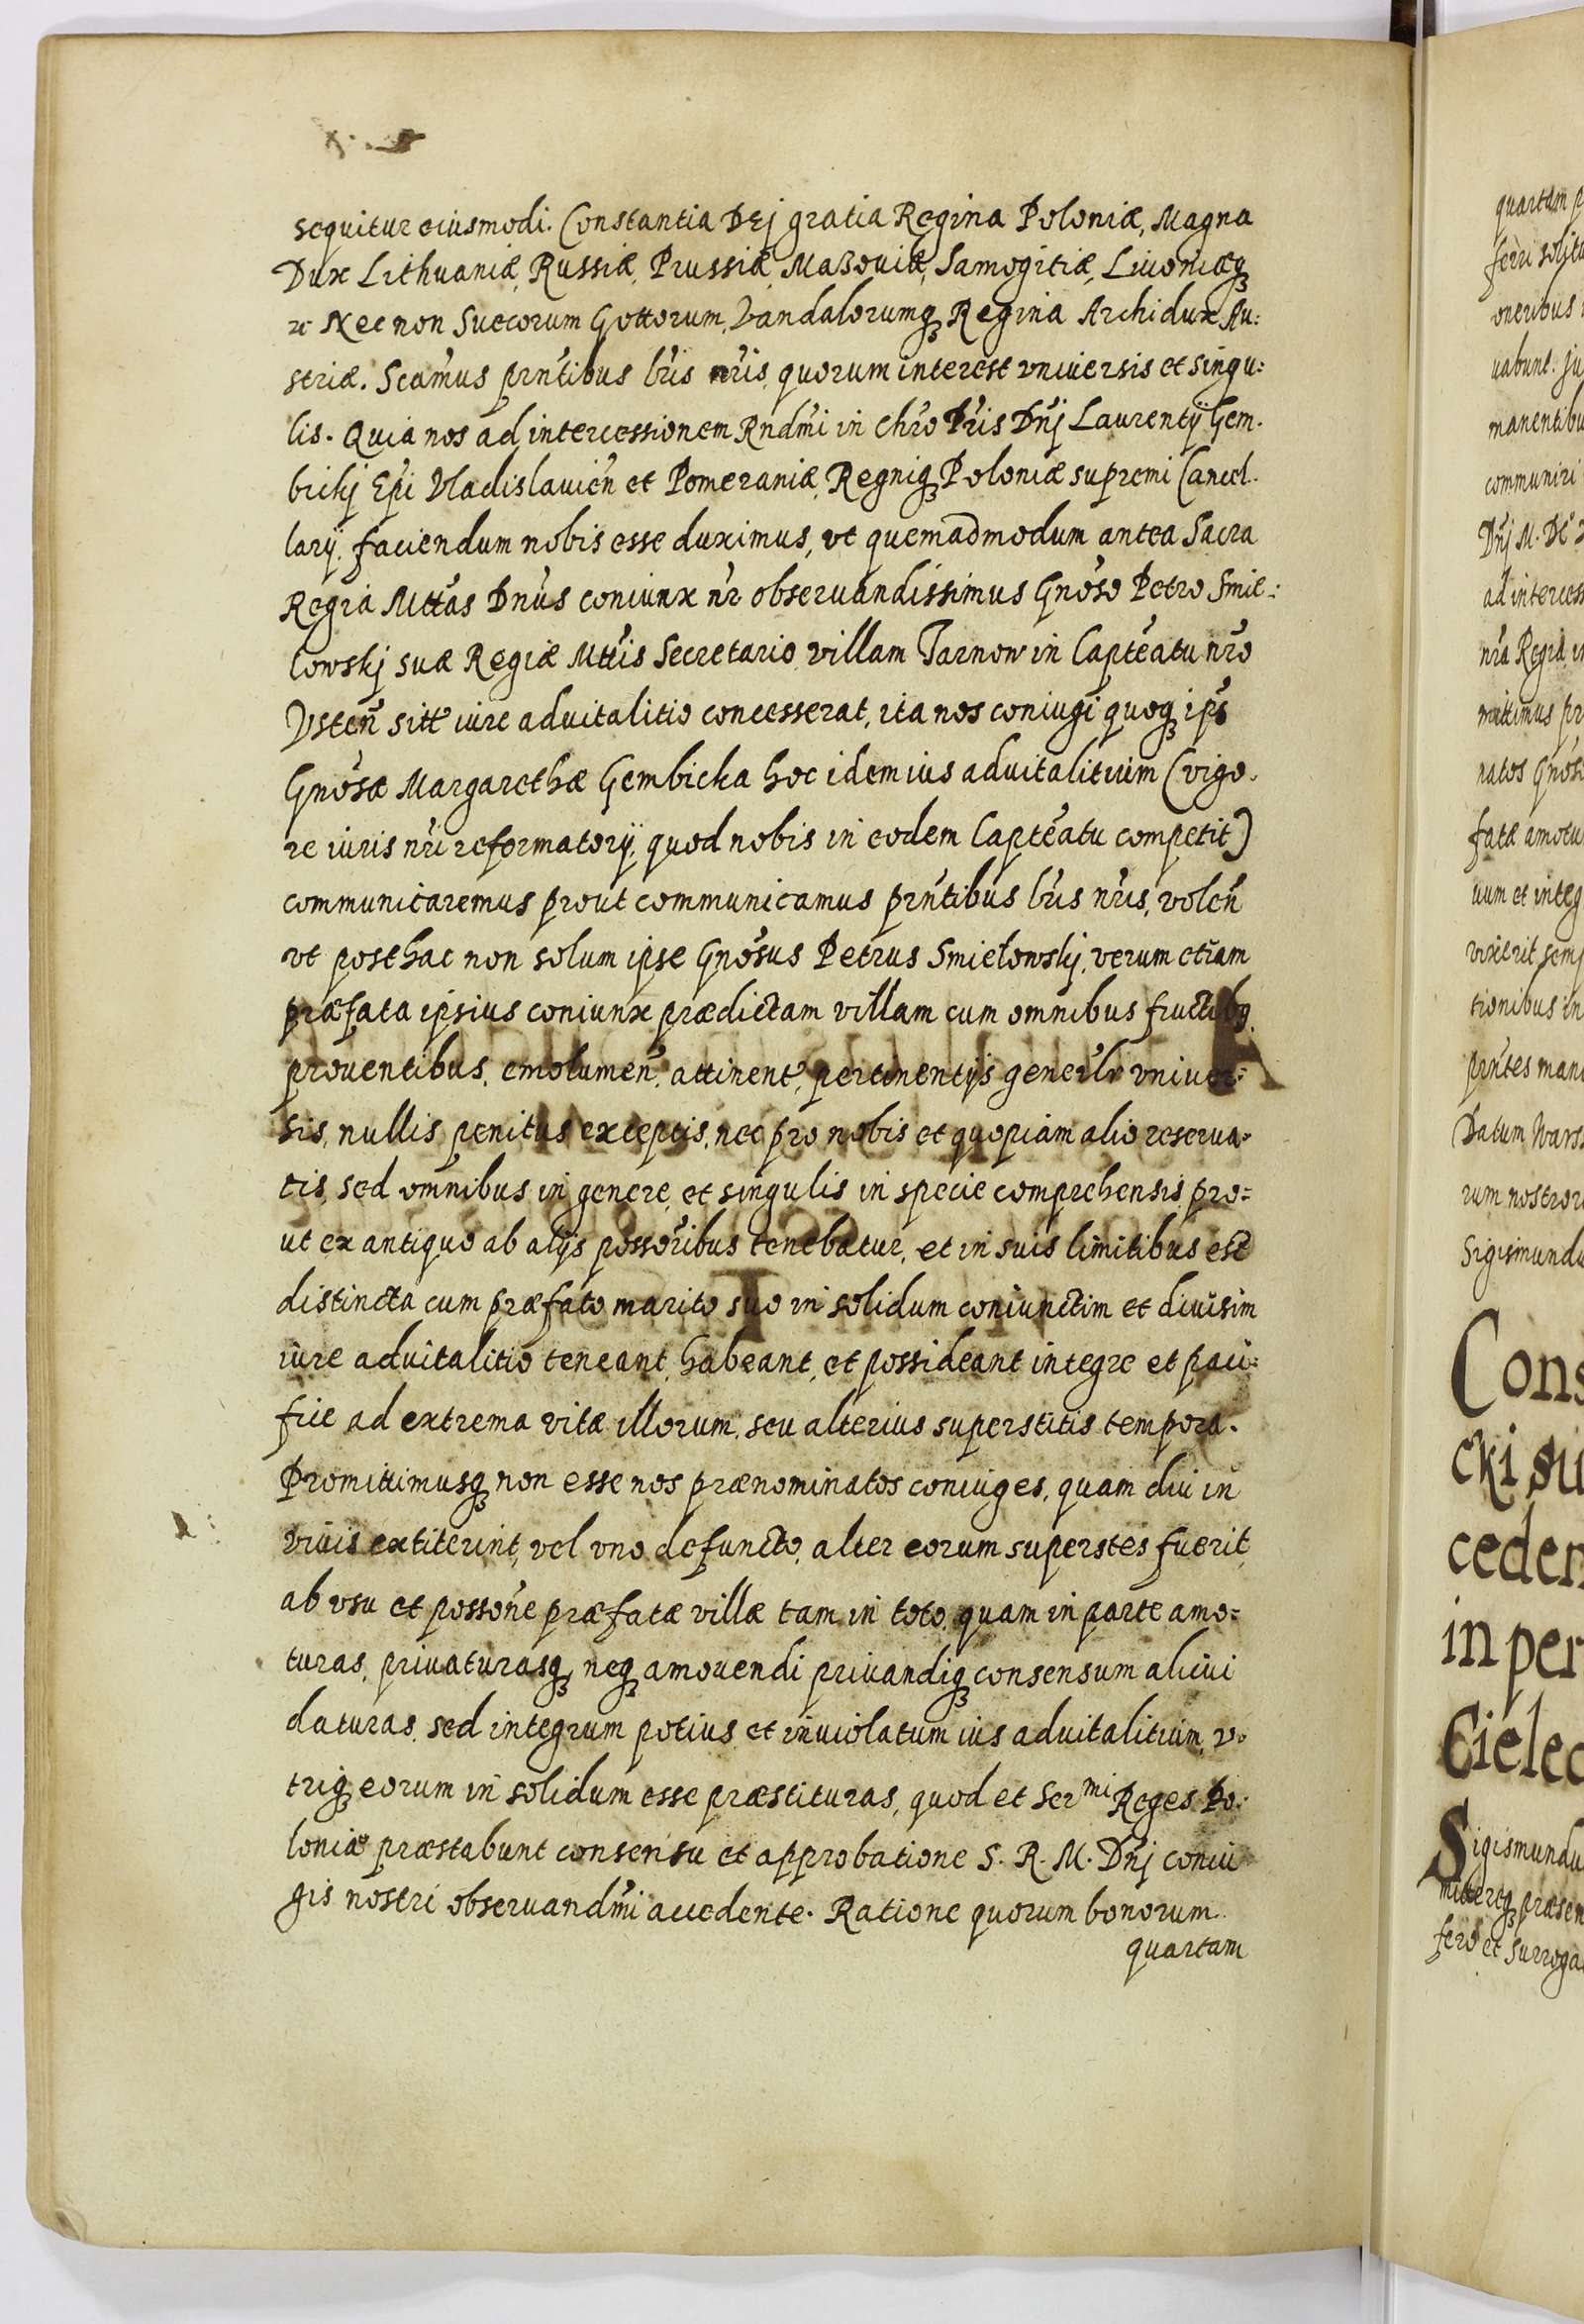 sequitur eiusmodi. Constantia Dej gratia Regina Poloniæ, Magna
Dux Lithuaniæ, Russiæ, Prussiæ, Mazouiæ, Samogitiæ, Liuoniæq́₃
ꝛc Nec non Suecorum Gottorum, Vandalorumq́₃ Regina Archidux Au:
striæ. Scamus prntibus lris nris, quorum interest vniuersis et singu:
lis. Quia nos ad intercessionem Rndmi in Chro Pris Dnj Laurentij Gem.
bickj Epi Vladislauien et Pomeraniæ, Regniq₃ Poloniæ supremi Cancel.
larij, faciendum nobis esse duximus, vt quemadmodum antea Sacra
Regia Mttas Dnus coniunx nr obseruandissimus Gnoso Petro Smie:
lowskj suæ Regiæ Mttis Secretario villam Tarnow in Capteatu nro
Vsten sitt iure aduitalitio concesserat, ita nos coniugi quoq₃ ips
Gnosæ Margarethæ Gembicka hoc idem ius aduitalitium (vigo.
re iuris nri reformatorij, quod nobis in eodem Capteatu competit)
communicaremus prout communicamus prntibus lris nris, volen
vt posthac non solum ipse Gnosus Petrus Smiełowskj, verum etiam
præfata ipsius coniunx prædictam villam cum omnibus fructibq
prouentibus, emolumen, attinent, pertinentijs generlr vniuer:
sis, nullis penitus exceptis, nec pro nobis et quopiam alio reserua:
tis, sed omnibus in genere, et singulis in specie comprehensis, pro:
ut ex antiquo ab alijs possoribus tenebatur, et in suis limitibus est
distincta cum præfato marito suo in solidum coniunctim et diuisim
iure aduitalitio teneant, habeant, et possideant integre et paci:
fice ad extrema vitæ illorum, seu alterius superstitis tempora.
Promittimusq₃ non esse nos prænominatos coniuges, quam diu in
viuis extiterint, vel vno defuncto, alter eorum superstes fuerit,
ab vsu et possone præfatæ villæ tam in toto, quam in parte amo:
turas, priuaturasq₃, neq₃ amouendi priuandiq₃ consensum alicui
daturas, sed integrum potius et inuiolatum ius aduitalitium, v.
triq₃ eorum in solidum esse præstituras, quod et Sermi Reges Po:
loniæ præstabunt consensu et approbatione S. R. M. Dnj coniu
gis nostri obseruandmi accedente. Ratione quorum bonorum
quartam
quartam
feri solit
oneribus
uabunt. Ju
manentibu
communiri
Dnj M. DC
ad interces
nra Regia
mittimus pr
natos Gnos
fatæ amotu
uum et integ
vixerit, sem
tionibus in
prntes man
Datum Wars
rum nostror
Sigismundu
Cons
cki su
ceden
in per
Cielec
Sigismundu
mitterq₃ præsen
fero et surroga